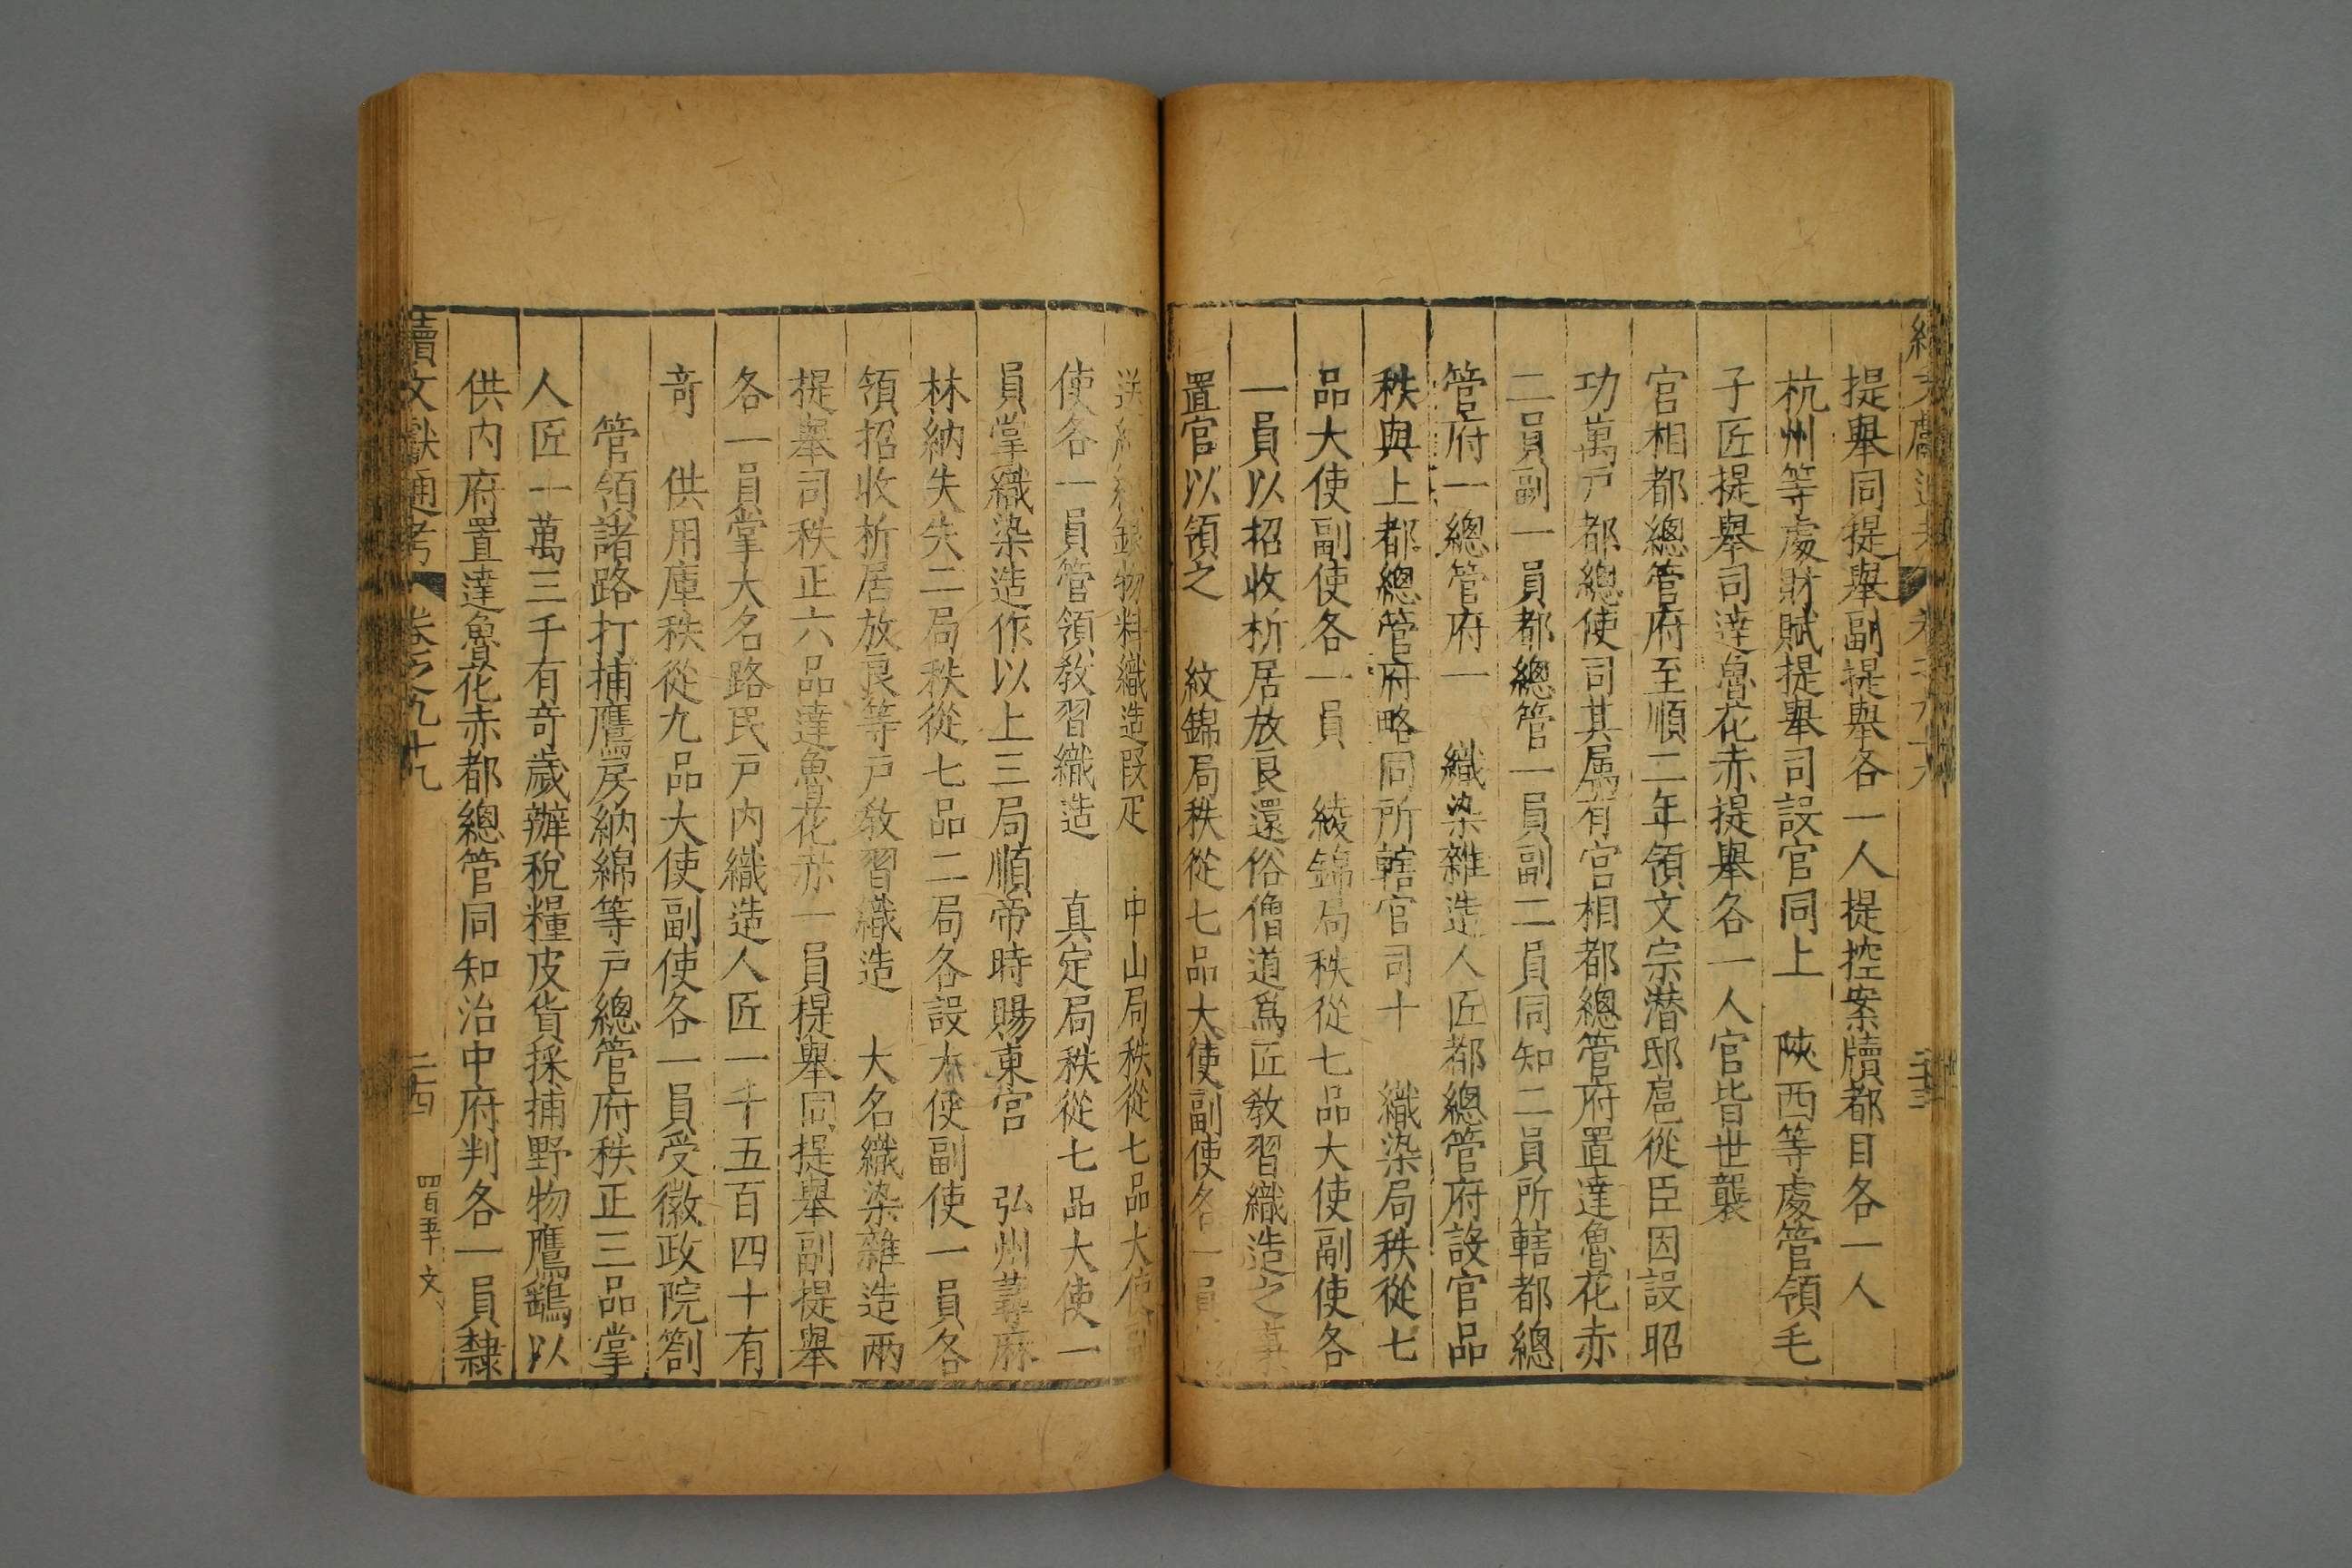 提舉同提舉副提舉各一人提控案牘都目各一人
杭州等處財賦提舉司設官同上　陜西等處管領毛
子匠提舉司達魯花赤提舉各一人官皆世襲
官相都總管府至順二年領文宗潜邸扈從臣因設昭
功萬戸都總使司其属有宫相都總管府置達魯花赤
二員副一員都總管一員副二員同知二員所轄都總
管府一總管府一　織染雜造人匠都總管府設官品
秩與上都總管府略同所轄官司十　織染局秩從七
品大使副使各一員　綾錦局秩從七品大使副使各
一員以招收析居放良還俗僧道爲匠教習織造之
置官以領之　紋錦局秩從七品大使副使各一員
送銀物料織造段疋　中山局秩從七品大使
使各一員管領教習織造　真定局秩從七品大使一
員掌織染造作以上三局順帝時賜東宫　弘州蕁麻
林納失失二局秩從七品二局各設大使副使一員各
領招收析居放良等戸教習織造　大名織染雜造兩
提舉司秩正六品達魯花赤一員提舉同提舉副提舉
各一員掌大名路民戸内織造人匠一千五百四十有
竒　供用庫秩從九品大使副使各一員受徽政院劄
管領諸路打捕鷹房納綿等戸總管府秩正三品掌
人匠一萬三千有竒歲辦稅糧皮貨採捕野物鷹鷂以
供内府置達魯花赤都總管同知治中府判各一員隸
續文獻通考　卷之九十九　二十四　四百五十　文